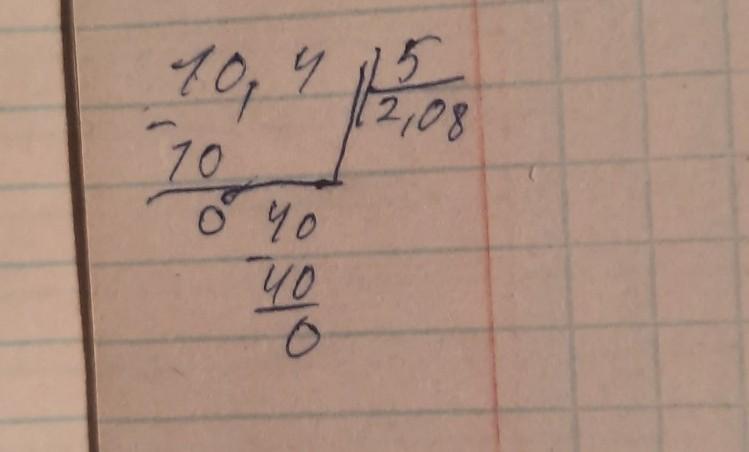 10,4 5
2,08
- 10
0 40
- 40
0